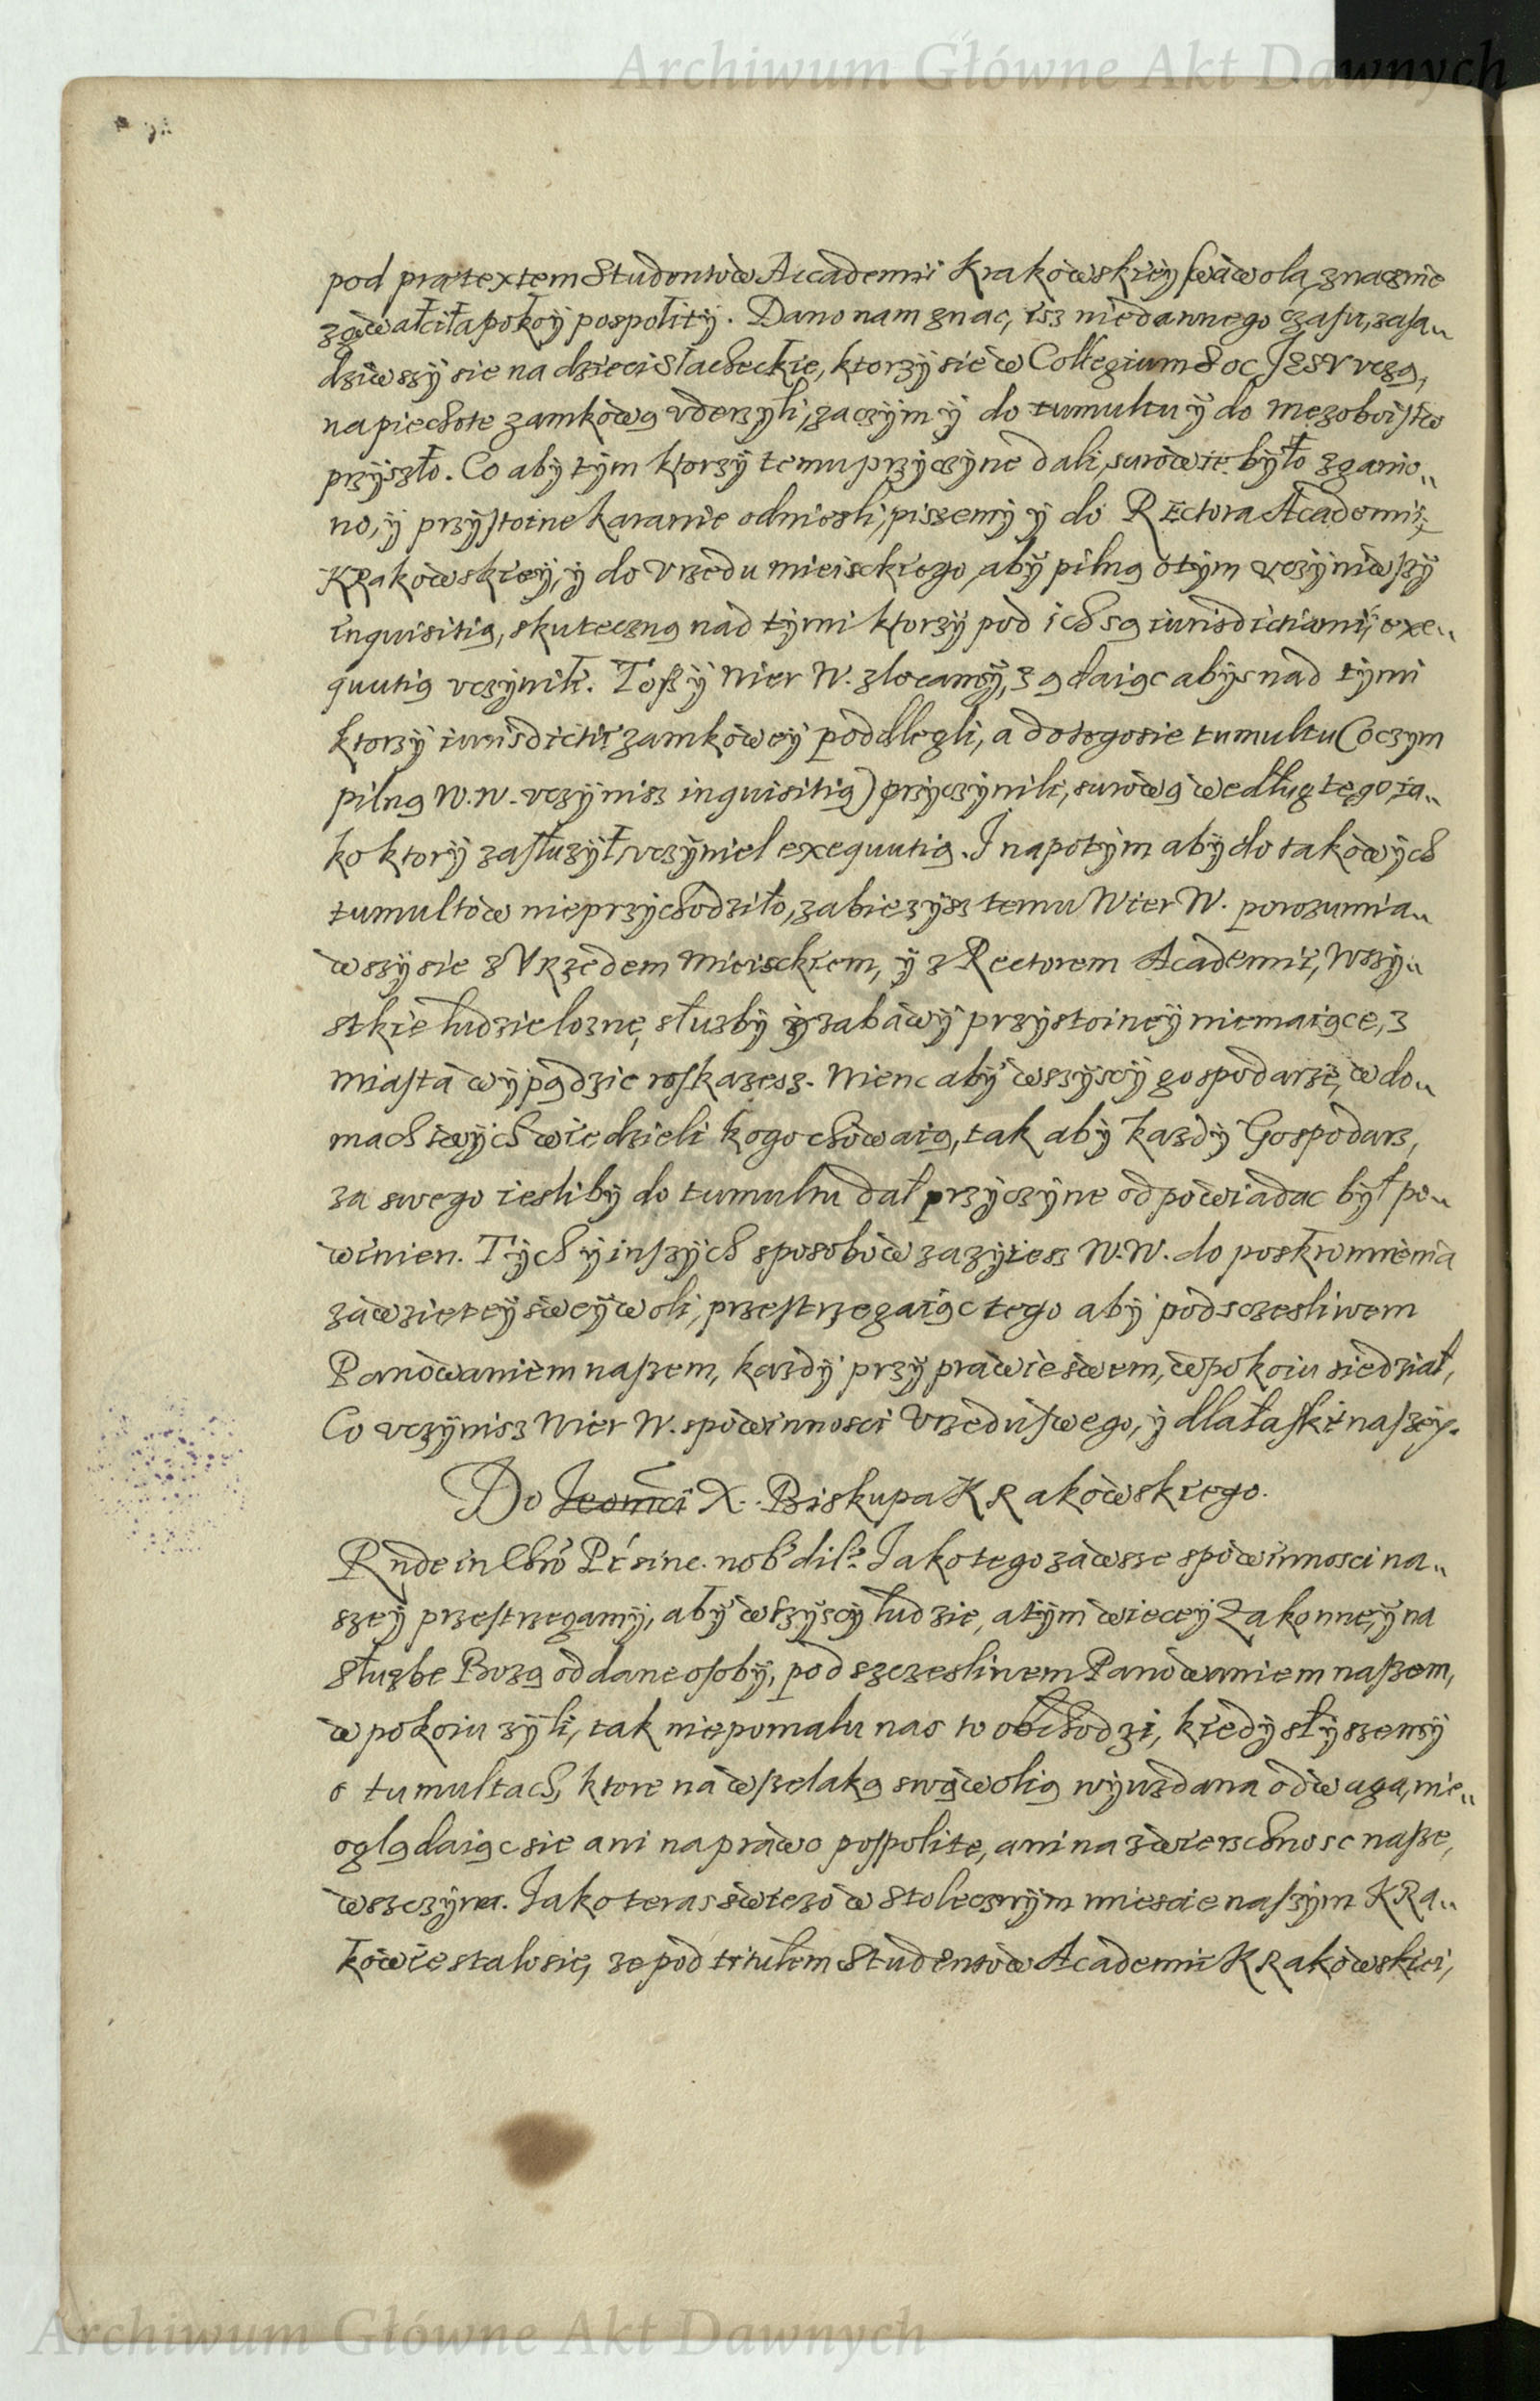 Archiwum Główne Akt Dawnych
pod praetextem Studentow Accademii Krakowskiey swawola, znacznie
zgwałciła pokoy pospolity. Dano nam znac, isz niedawnego czasu, zasa„
dziwszy sie na dzieci Slacheckie, ktorzy sie w Collegium Soc JESV vczą,
na piechote zamkową vderzyli, zaczym y do tumultu y do męzoboistw
przyszło. Co aby tym ktorzy temu przyczyne dali, surowie było zganio„
no, y przystoine karanie odniesli, piszemy y do Rectora Academii
KRakowskiey, y do Vrzedu mieisckiego, aby pilną o tym vczyniwszy
inquisitią, skuteczną nad tymi ktorzy pod ich są iurisdictiami, exe„
quutią vczynili. Tosz y Wier W. zlecamy, ządaiąc abys nad tymi
ktorzy iurisdictii zamkowey podlegli, a do tego sie tumultu (o czym
pilną W. W. vczynisz inquisitią) przyczynili, surową według tego ia„
ko ktory zasłuzył, vczynieł exequutią. I napotym aby do takowych
tumultow nieprzychodziło, zabiezysz temu Wier W. porozumia„
wszy sie z VRzedem mieisckiem, y z Rectorem Academii, wszy„
stkie ludzie loznę, słuzby y zabawy przystoiney niemaiące, z
miasta wypądzic roskazesz. Wienc aby wszyscy gospodarze, w do„
mach swych wiedzieli kogo chowaią, tak aby kazdy Gospodarz,
za swego iesliby do tumultu dał przyczyne odpowiadac był po„
winien. Tych y inszych sposobow zazyiesz W. W. do poskromnienia
zawzietey swey woli, przestrzegaiąc tego aby pod sczesliwem
Panowaniem naszem, kazdy przy prawie swem, w pokoiu siedział,
Co vczynisz Wier W. s powinnosci Vrzedu swego, y dla łaski naszey.
Do Jeomci X. Biskupa KRakowskiego.
Rnde in Chro Pr sinc. nob dil. Jako tego zawsze s powinnosci na„
szey przestrzegamy, aby wszyscy ludzie, a tym wiecey Zakonne, y na
słuzbe Bozą oddane osoby, pod szczesliwem Panowaniem naszem,
w pokoiu zyli, tak niepomalu nas to obchodzi, kiedy słyszemy
o tumultach, ktore na wszelaką swąwolią wyuzdana odwaga, nie„
oglądaiąc sie ani na prawo pospolite, ani na zwierzchnosc nasze,
wszczyna. Jako teras swiezo w Stolecznym miescie naszym KRa„
kowie stalo sie, ze pod titulem Studentow Academii KRakowskiei,
Archiwum Główne Akt Dawnych